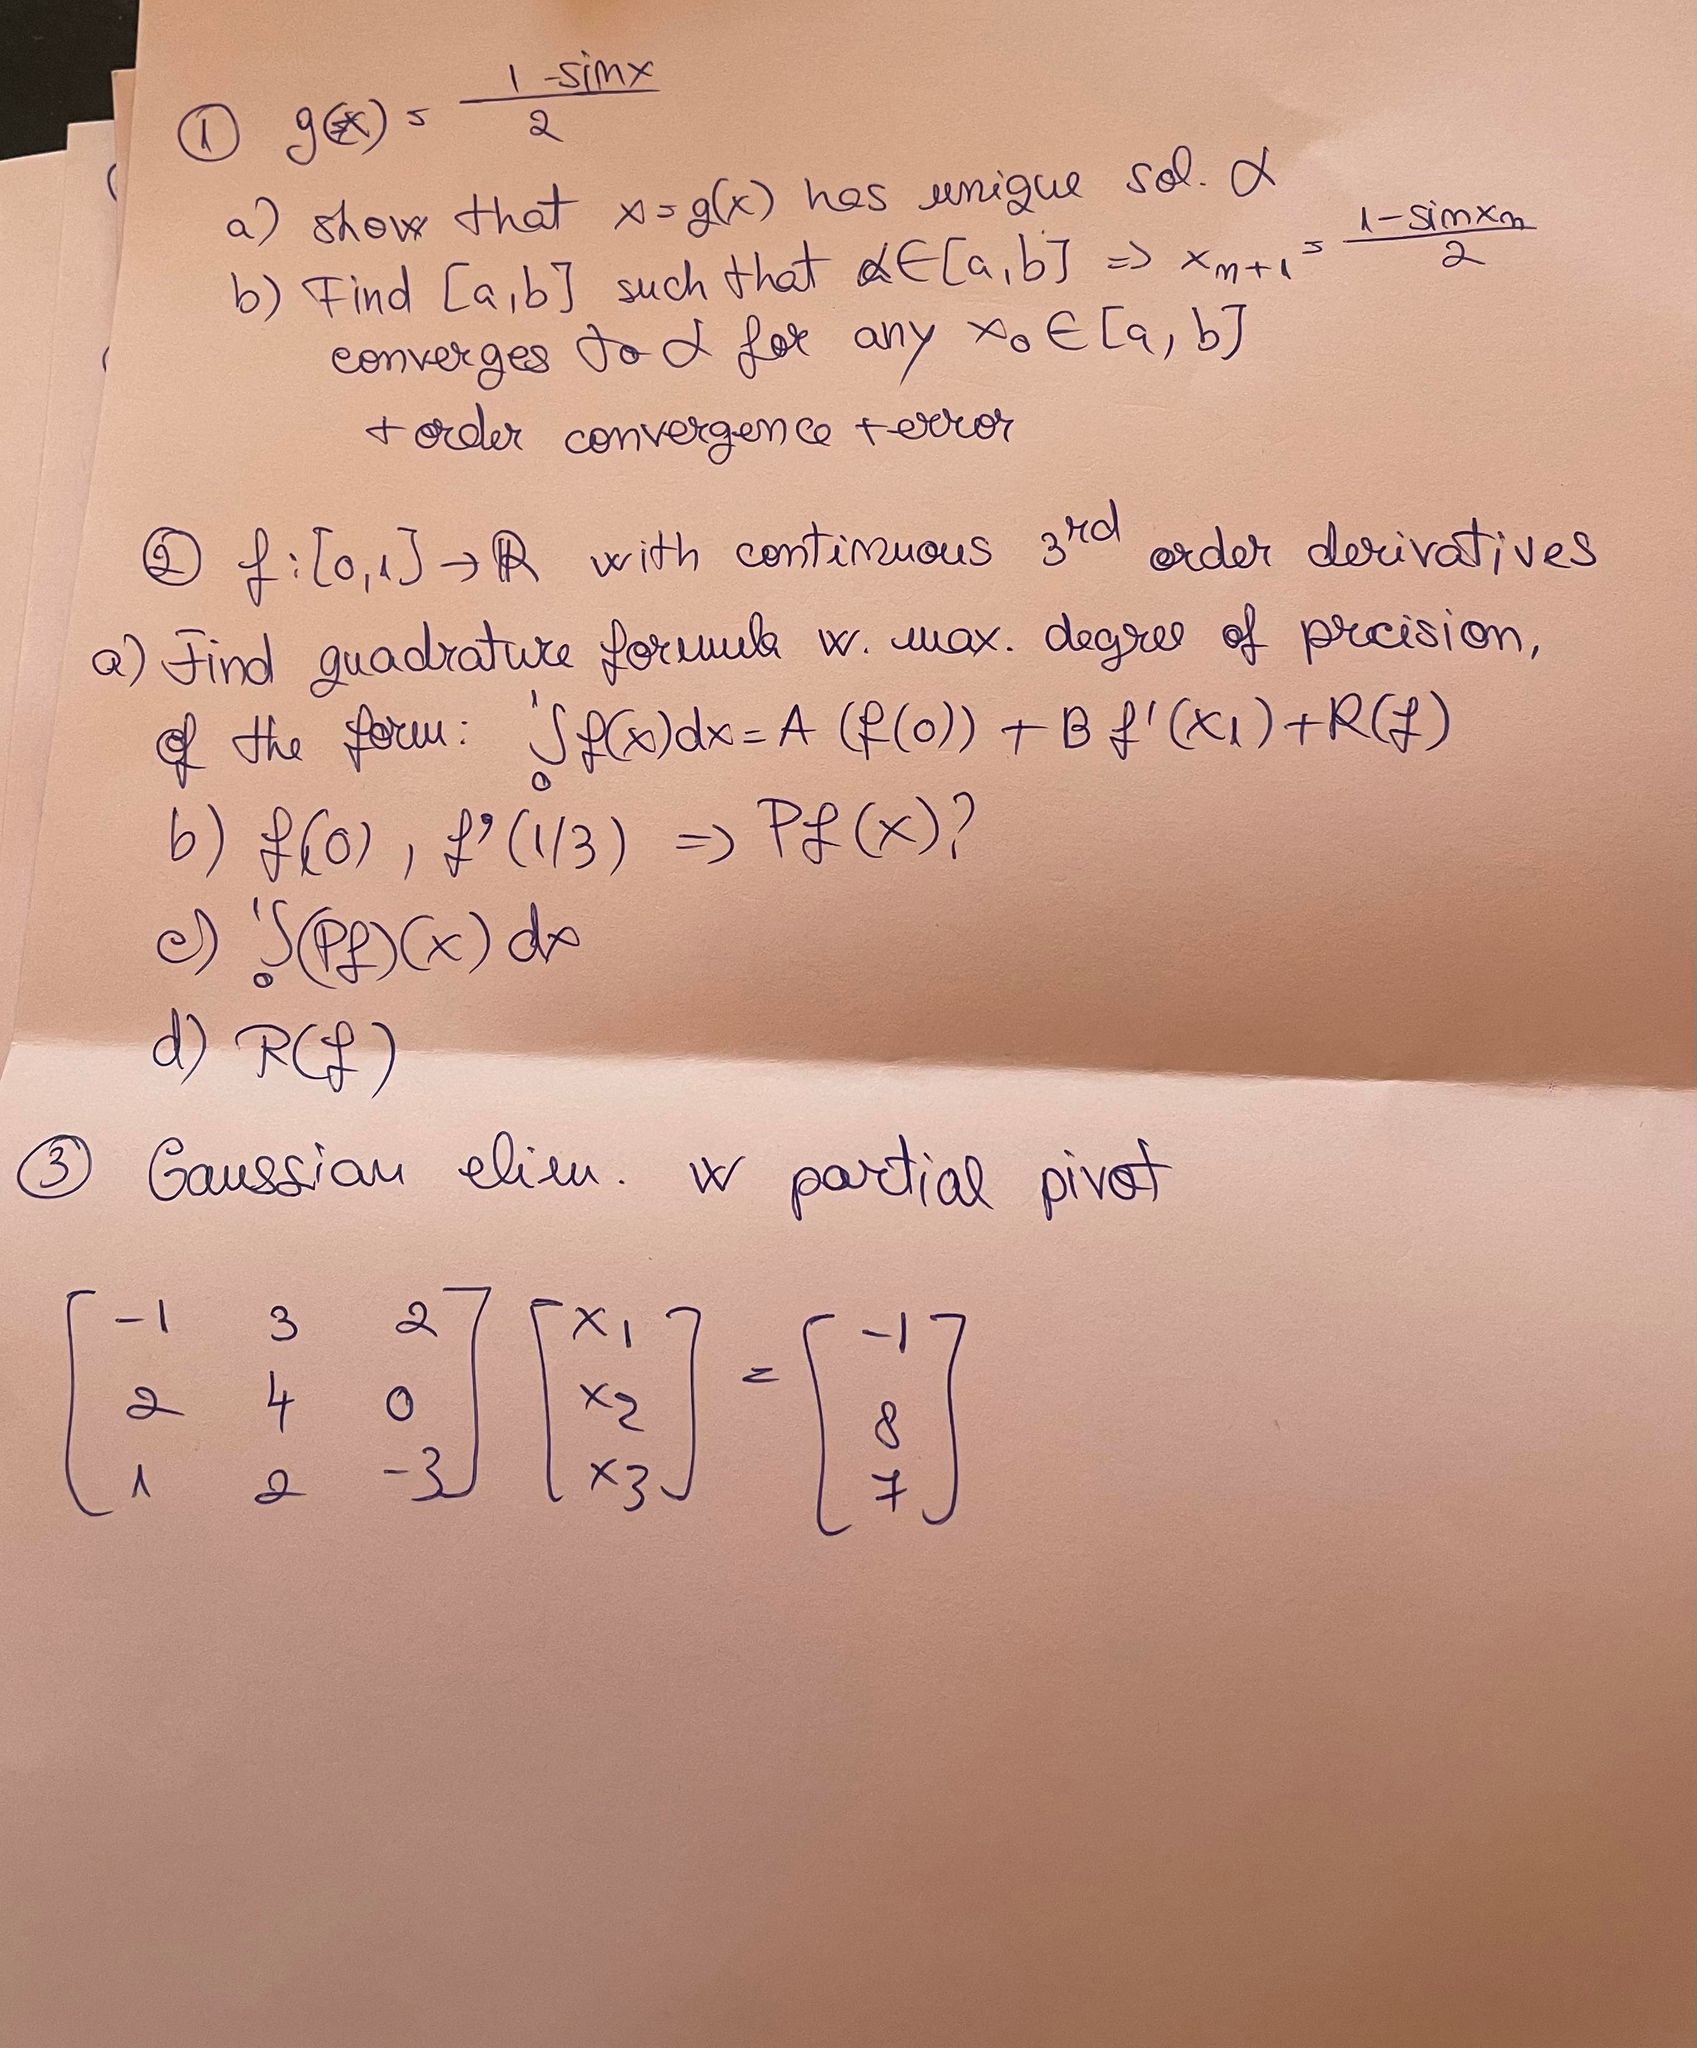 ① g(x) = 1-sinx / 2
a) show that x=g(x) has unique sol. α
b) Find [a,b] such that α∈[a,b] => xn+1 = 1-sinxn / 2
converges to α for any x0 ∈ [a, b]
+ order convergence + error
② f:[0,1]→ℝ with continuous 3rd order derivatives
a) Find quadrature formula w. max. degree of precision,
of the form: ∫₀¹ f(x)dx = A (f(0)) + B f'(x1) + R(f)
b) f(0), f'(1/3) => Pf(x)?
c) ∫₀¹ (Pf)(x) dx
d) R(f)
③ Gaussian elim. w partial pivot
[-1 3 2] [x1] = [-1]
[2 4 0] [x2] [8]
[1 2 -3] [x3] [7]